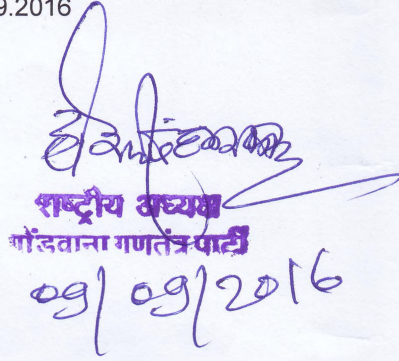 9.2016
राष्ट्रीय अध्यक्ष
गोंडवाना गणतंत्र पार्टी
09/09/2016